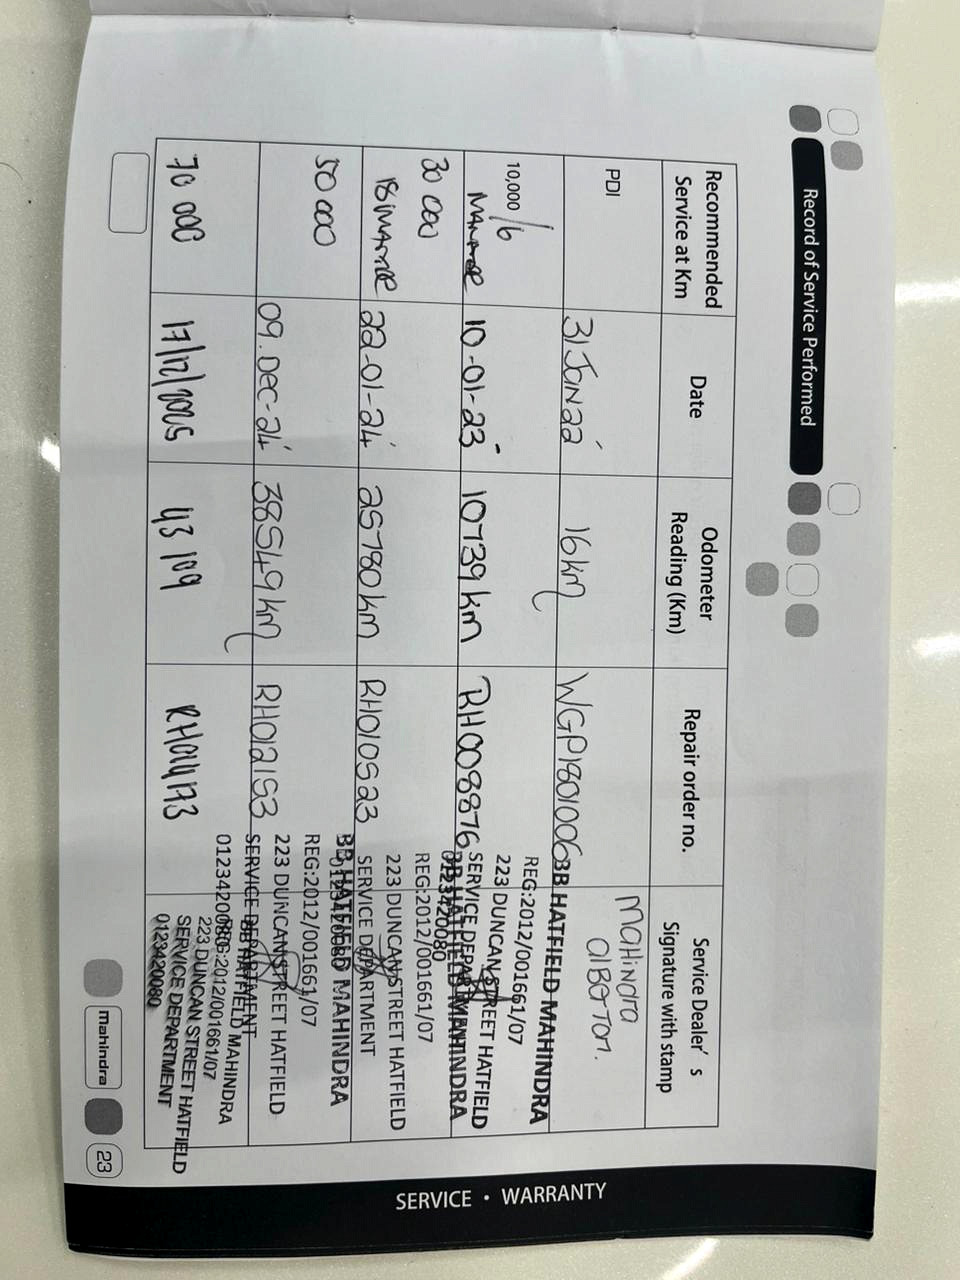 Record of Service Performed
Recommended Service at Km
Date
Odometer Reading (Km)
Repair order no.
Service Dealer' s Signature with stamp
PDI
31 Jan 22
16km
WGP1801006
Mahindra
10,000/6
10-01-23
10739km
RH008876
BB HATFIELD MAHINDRA
REG:2012/001661/07
223 DUNCAN STREET HATFIELD
SERVICE DEPARTMENT
0123420080
30 000
22-01-24
25780km
RH010523
BB HATFIELD MAHINDRA
REG:2012/001661/07
223 DUNCAN STREET HATFIELD
SERVICE DEPARTMENT
0123420080
50 000
09.Dec-24
38549km
RH012153
BB HATFIELD MAHINDRA
REG:2012/001661/07
223 DUNCAN STREET HATFIELD
SERVICE DEPARTMENT
0123420080
70 000
17/12/2025
43 109
RH014173
BB HATFIELD MAHINDRA
REG:2012/001661/07
223 DUNCAN STREET HATFIELD
SERVICE DEPARTMENT
0123420080
mahindra
23
SERVICE • WARRANTY